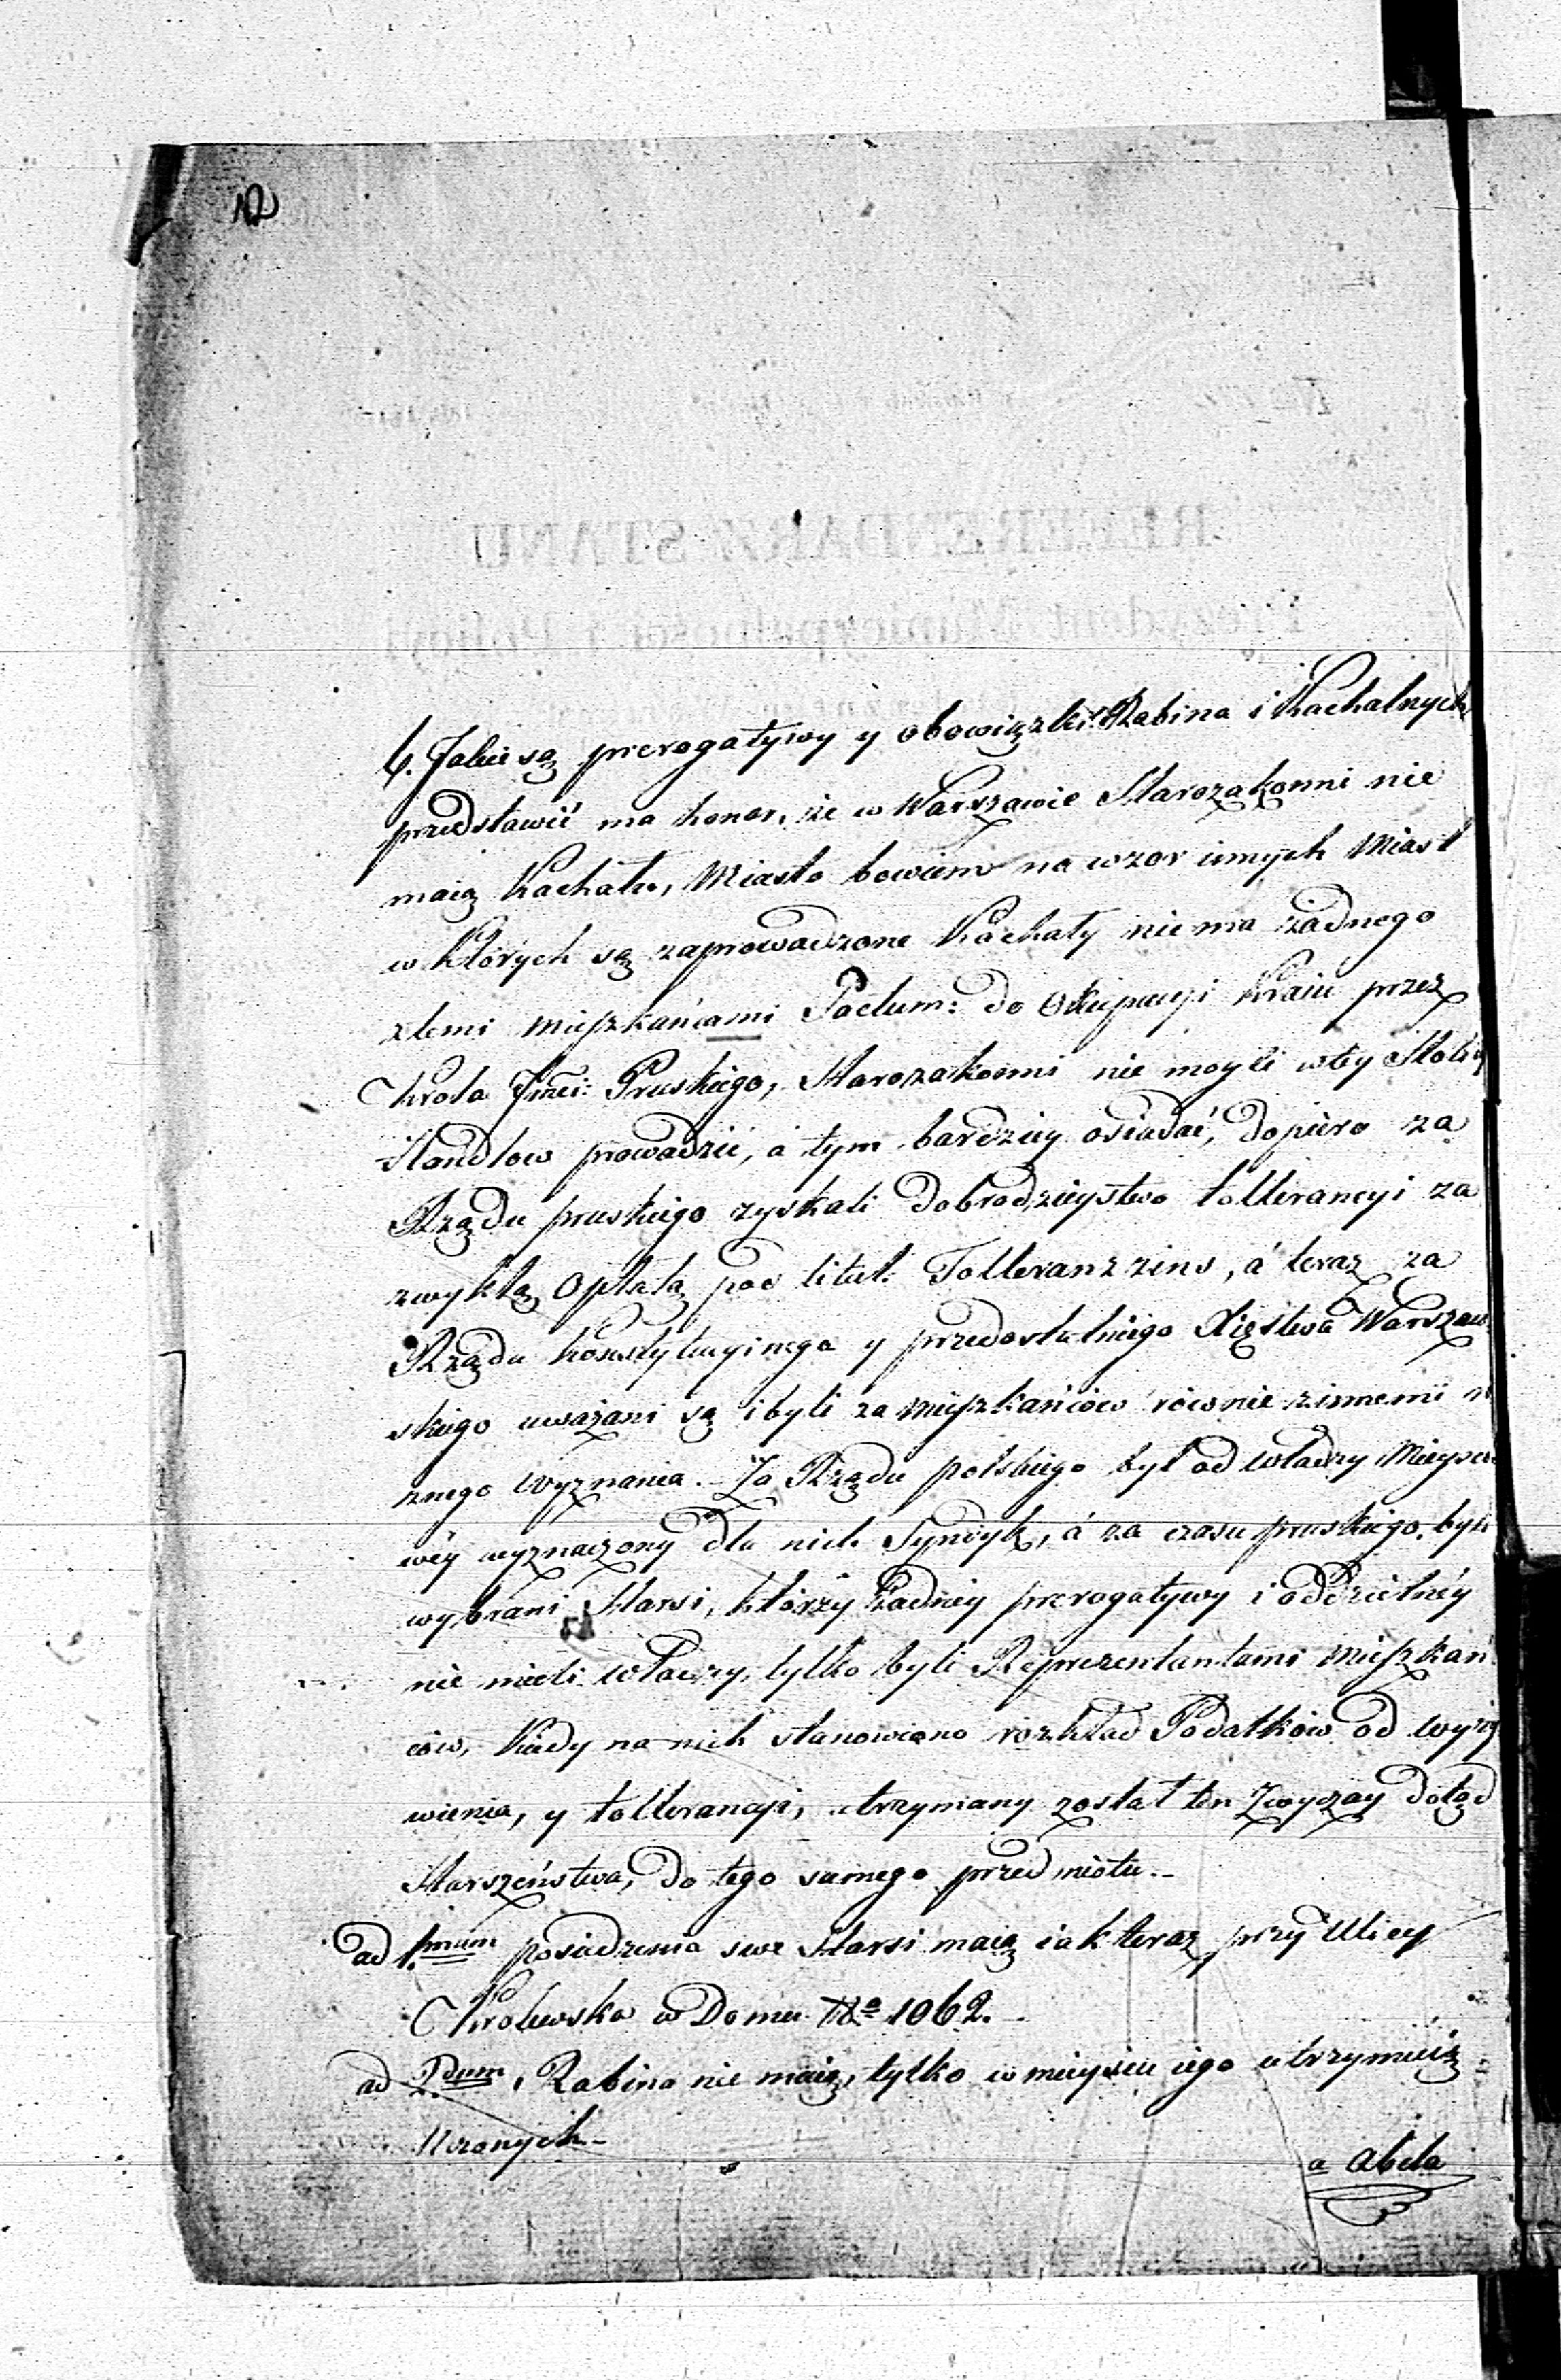 12
6. Jakie są prerogatywy y obowiązki Rabina i Kachalnych
przedstawić ma honor, że w Warszawie Starozakonni nie
maią Kachału, Miasto bowiem na wzor innych Miast
w których są zaprowadzone Kachały nie ma żadnego
z temi mieszkańcami Pactum: do Okupacyi Kraiu przez
Krola Jmci: Pruskiego, Starozakonni nie mogli w tey Stolicy
Handlow prowadzić, á tym bardziey osiadać, dopiero za
Rządu pruskiego zyskali dobrodzieystwo tollerancyi za
zwykłą opłatą pod titul. Tolleranzzins, á teraz za
Rządu konstytucyinego y przedostatniego Xięstwa Warszaw-
skiego uważani są i byli za mieszkańców równie z innemi
nnego wyznania. Za Rządu polskiego był od władzy Mieysco
wéy wyznaczony dla nich Syndyk, á za czasu pruskiego byli
wybrani Starsi, którzy żadnéy prerogatywy i oddzielnéy
nie mieli władzy, tylko byli Reprezentantami mieszkań
ców, kiedy na nich stanowiono rozkład Podatków od wyży
wienia, y tollerancyi, utrzymany został ten Zwyczay dotąd
Starszeństwa, do tego samego przedmiotu.-
ad 1.mum posiadzenia swe Starsi maią iak teraz przy Ulicy
Krolewska w Domu No 1062.-
ad 2dum, Rabina nie maią, tylko w mieyscu iego utrzymuią
Uczonych-
a abela
REFERENDARZ STANU
Prezydent Municypalności i Policyi